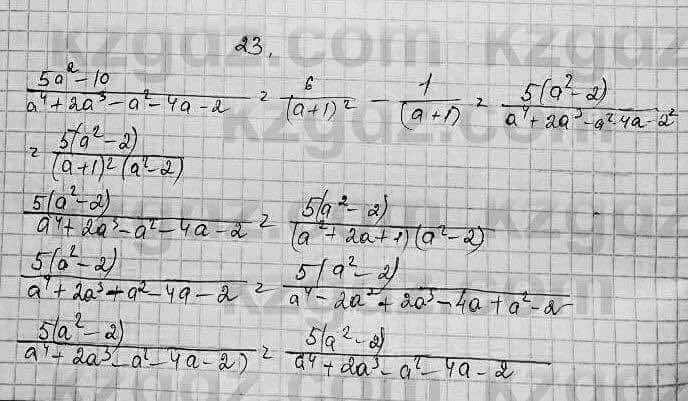 23.
(5a²-10)/(a⁴+2a³-a²-4a-2) = 6/(a+1)² - 1/(a+1) = 5(a²-2)/(a⁴+2a³-a²-4a-2) =
= 5(a²-2)/((a+1)²(a²-2))
5(a²-2)/(a⁴+2a³-a²-4a-2) = 5(a²-2)/((a²+2a+1)(a²-2))
5(a²-2)/(a⁴+2a³+a²-4a-2) = 5(a²-2)/(a⁴-2a²+2a³-4a+a²-2)
5(a²-2)/(a⁴+2a³-a²-4a-2) = 5(a²-2)/(a⁴+2a³-a²-4a-2)
kzgdz.com